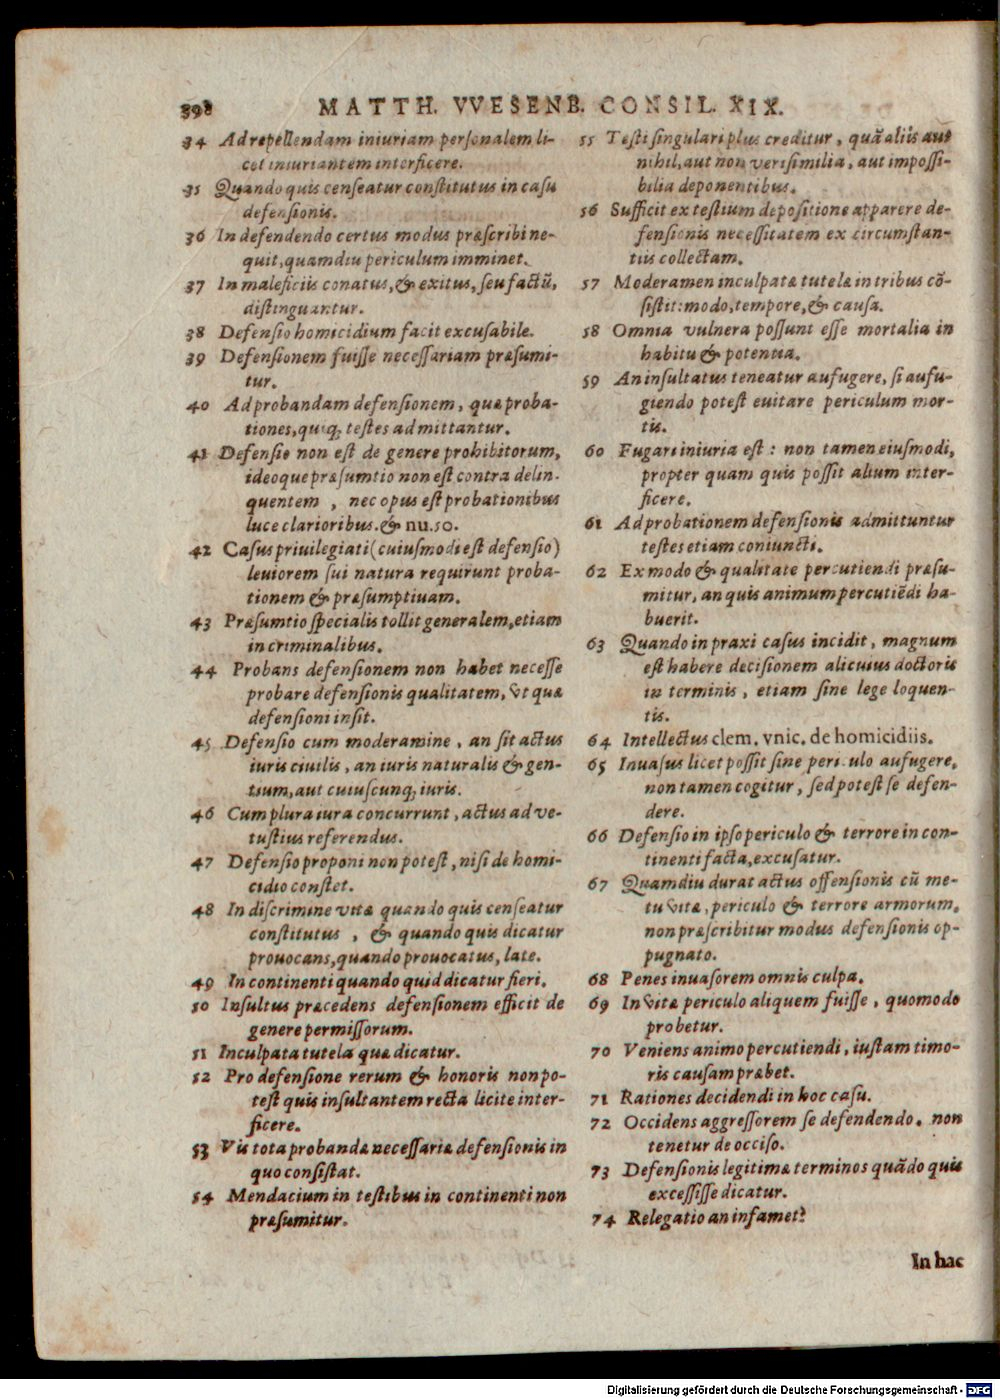 398 MATTH. VVESENB. CONSIL. XIX.
34 Ad repellendam iniuriam personalem li-
cet iniuriantem interficere.
35 Quando quis censeatur constitutus in casu
defensionis.
36 In defendendo certus modus præscribi ne-
quit, quamdiu periculum imminet.
37 In maleficiis conatus, & exitus, seu factũ,
distinguantur.
38 Defensio homicidium facit excusabile.
39 Defensionem fuisse necessariam præsumi-
tur.
40 Ad probandam defensionem, quæ proba-
tiones, quiq; testes admittantur.
41 Defensio non est de genere prohibitorum,
ideoque præsumtio non est contra delin-
quentem, nec opus est probationibus
luce clarioribus. & nu. 50.
42 Casus priuilegiati (cuiusmodi est defensio)
leuiorem sui natura requirunt proba-
tionem & præsumptiuam.
43 Præsumtio specialis tollit generalem, etiam
in criminalibus.
44 Probans defensionem non habet necesse
probare defensionis qualitatem, vt quæ
defensioni insit.
45 Defensio cum moderamine, an sit actus
iuris ciuilis, an iuris naturalis & gen-
tium, aut cuiuscunq; iuris.
46 Cum plura iura concurrunt, actus ad ve-
tustius referendus.
47 Defensio proponi non potest, nisi de homi-
cidio constet.
48 In discrimine vitæ quando quis censeatur
constitutus, & quando quis dicatur
prouocans, quando prouocatus, late.
49 In continenti quando quid dicatur fieri.
50 Insultus præcedens defensionem efficit de
genere permissorum.
51 Inculpata tutela quæ dicatur.
52 Pro defensione rerum & honoris non po-
test quis insultantem recta licite inter-
ficere.
53 Vis tota probandæ necessariæ defensionis in
quo consistat.
54 Mendacium in testibus in continenti non
præsumitur.
55 Testi singulari plus creditur, quã aliis aut
nihil, aut non verisimilia, aut impossi-
bilia deponentibus.
56 Sufficit ex testium depositione apparere de-
fensionis necessitatem ex circumstan-
tiis collectam.
57 Moderamen inculpatæ tutelæ in tribus cõ-
sistit: modo, tempore, & causa.
58 Omnia vulnera possunt esse mortalia in
habitu & potentia.
59 An insultatus teneatur aufugere, si aufu-
giendo potest euitare periculum mor-
tis.
60 Fugari iniuria est: non tamen eiusmodi,
propter quam quis possit alium inter-
ficere.
61 Ad probationem defensionis admittuntur
testes etiam coniuncti.
62 Ex modo & qualitate percutiendi præsu-
mitur, an quis animum percutiẽdi ha-
buerit.
63 Quando in praxi casus incidit, magnum
est habere decisionem alicuius doctoris
in terminis, etiam sine lege loquen-
tis.
64 Intellectus clem. vnic. de homicidiis.
65 Inuasus licet possit sine periculo aufugere,
non tamen cogitur, sed potest se defen-
dere.
66 Defensio in ipso periculo & terrore in con-
tinenti facta, excusatur.
67 Quamdiu durat actus offensionis cũ me-
tu vitæ, periculo & terrore armorum,
non præscribitur modus defensionis op-
pugnato.
68 Penes inuasorem omnis culpa.
69 In vitæ periculo aliquem fuisse, quomodo
probetur.
70 Veniens animo percutiendi, iustam timo-
ris causam præbet.
71 Rationes decidendi in hoc casu.
72 Occidens aggressorem se defendendo, non
tenetur de occiso.
73 Defensionis legitimæ terminos quãdo quis
excessisse dicatur.
74 Relegatio an infamet?
In hac
Digitalisierung gefördert durch die Deutsche Forschungsgemeinschaft - DFG